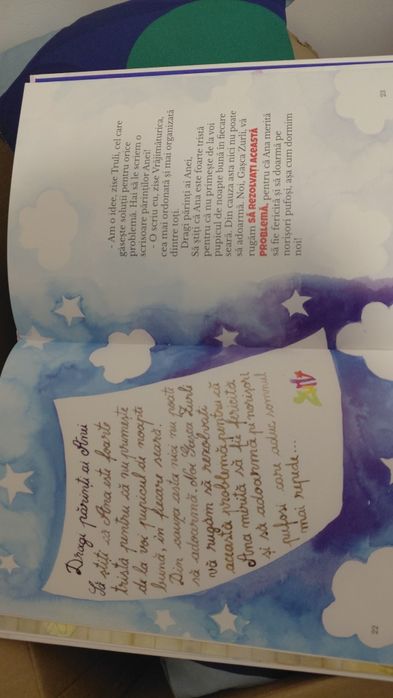 Dragi părinți ai Anei
Să știți că Ana este foarte
tristă pentru că nu primește
de la voi pupicul de noapte
bună, în fiecare seară.
Din cauza asta nici nu poate
să adoarmă. Noi, Gașca Zurli
vă rugăm să rezolvați
această problemă pentru că
Ana merită să fie fericită
și să adoarmă pe norișori
pufoși care aduc somnul
mai repede...
22
- Am o idee, zise Truli, cel care
găsește soluții pentru orice
problemă. Hai să le scriem o
scrisoare părinților Anei!
- O scriu eu, zise Vrăjimăturica,
cea mai ordonată și mai organizată
dintre toți.
Dragi părinți ai Anei,
Să știți că Ana este foarte tristă
pentru că nu primește de la voi
pupicul de noapte bună în fiecare
seară. Din cauza asta nici nu poate
să adoarmă. Noi, Gașca Zurli, vă
rugăm SĂ REZOLVAȚI ACEASTĂ
PROBLEMĂ, pentru că Ana merită
să fie fericită și să doarmă pe
norișori pufoși, așa cum dormim
noi!
23